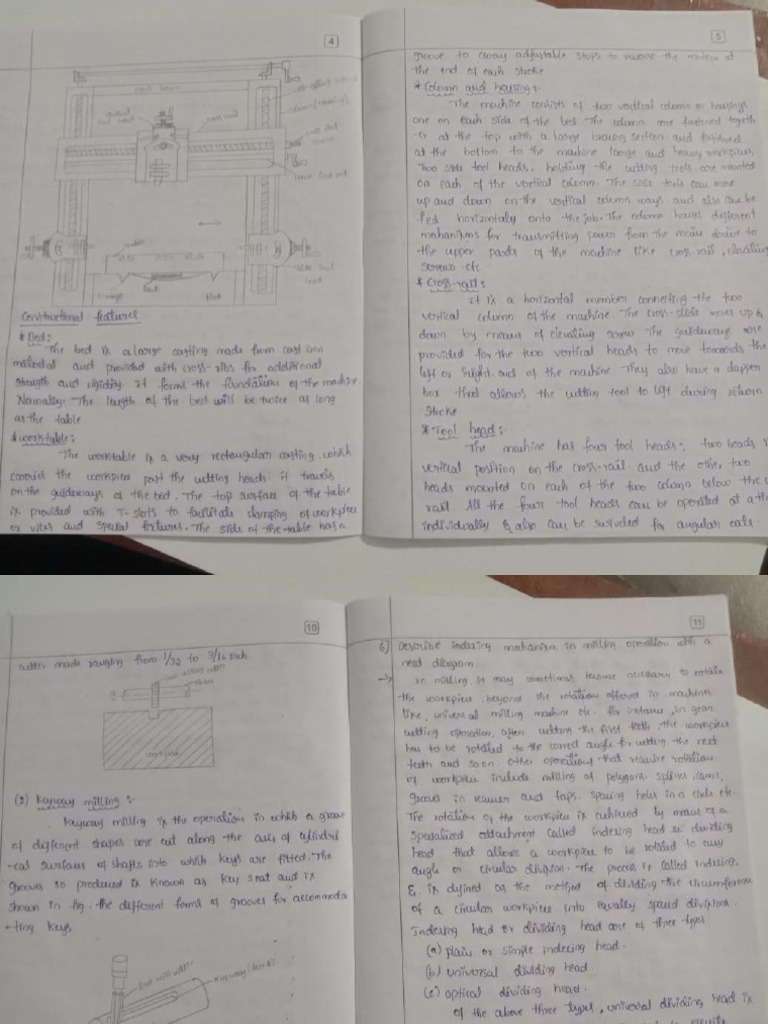 4
cross rail
Constructional features
* Bed:
The bed is a large casting made from cast iron
material and provided with cross-ribs for additional
strength and rigidity it forms the foundation of the machine
Normally The length of the bed will be twice as long
as the table
* worktable:
The worktable is a very rectangular casting. which
carries the workpiece past the cutting heads. it travels
on the guideways of the bed. The top surface of the table
is provided with T-slots to facilitate clamping of workpiece
or vices and special fixtures. The side of the table has a
5
groove to carry adjustable stops to reverse the motion at
the end of each stroke
* Column and housing:-
The machine consists of two vertical column or housings
one on each side of the bed The column are fastened togeth
-er at the top with a large section and fastened
at the bottom to the machine large and heavy workpieces,
Two side tool heads. holding the cutting tools are mounted
on each of the vertical column. The side tools can move
up and down on the vertical column ways and also can be
fed horizontaly onto the job. The column houses different
mechanisms for transmitting power from the main drive to
the upper parts of the machine like cross-rail, elevating
screws etc.
* Cross-rail:
It is a horizontal member connecting the two
vertical column of the machine. The cross-slide moves up &
down by means of elevating screw The guideways are
provided for the two vertical heads to move towards the
left or right end of the machine They also have a clapper
box that allows the cutting tool to lift during return
stroke
* Tool head:-
The machine has four tool heads; two heads in
vertical position on the cross-rail. and the other two
heads mounted on each of the two column below the
rail All the four tool heads can be operated at a
individually & also can be swiveled for angular cuts
10
cutter made ranging from 1/32 to 3/16 inch.
workpiece
(2) Keyway milling:-
Keyway milling is the operation in which a groove
of different shapes are cut along the axis of cylindri
-cal surfaces of shafts into which keys are fitted. The
grooves so produced is known as key seat and is
shown in fig. the different forms of grooves for accommoda
-ting keys
End mill cutter
Keyway
11
6) Describe indexing mechanism in milling operation with a
neat diagram.
-> in milling, it may sometimes become necessary to rotate
the workpiece beyond the rotation offered in machines
like, universal milling machine etc. for instance, in gear
cutting operation, after cutting the first teeth, the workpiece
has to be rotated to the correct angle for cutting the next
teeth and so on. other operations that require rotation
of workpiece include milling of polygons, splines, cams,
grooves in reamer and taps, spacing holes in a circle etc.
The rotation of the workpiece is achieved by means of a
specialized attachment called indexing head or dividing
head that allows a workpiece to be rotated to any
angle or circular division. The process is called indexing.
& is defined as the method of dividing the circumference
of a circular workpiece into equally spaced divisions.
Indexing head or dividing head are of three types.
(a) plain or simple indexing head.
(b) universal dividing head
(c) optical dividing head.
of the above three types, universal dividing head is